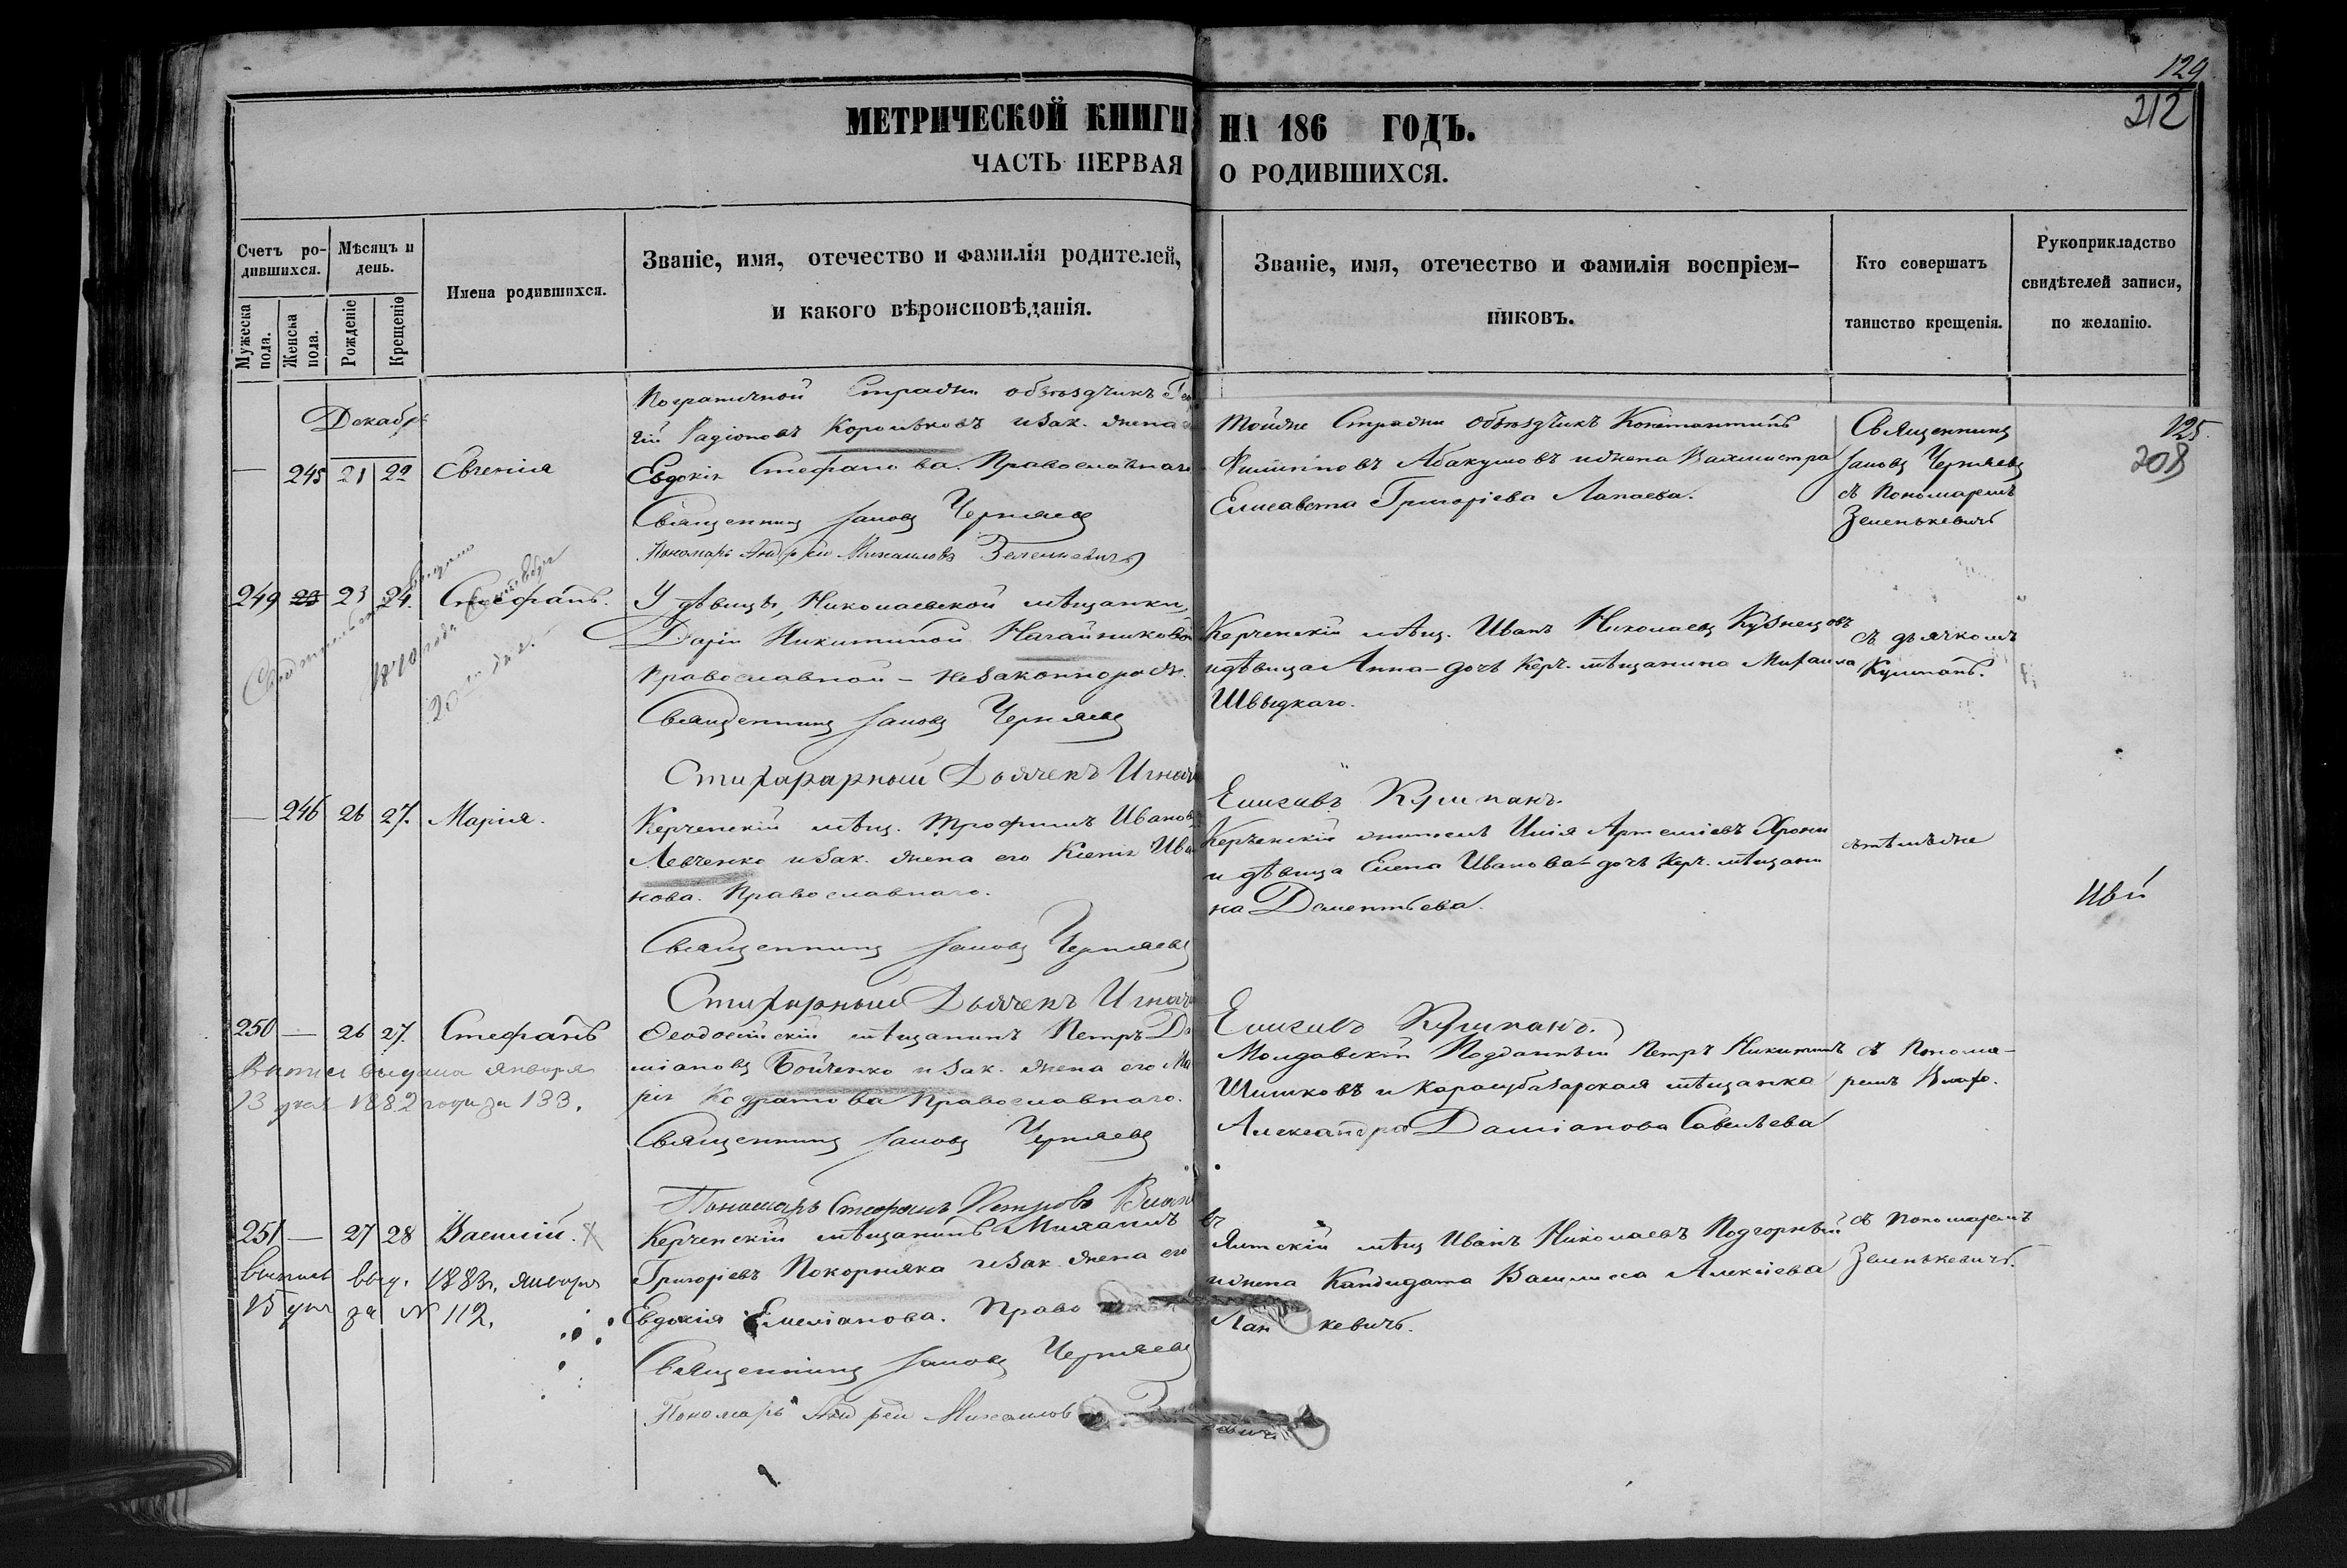 129
212
МЕТРИЧЕСКОЙ КНИГИ НА 186 ГОДЪ.
ЧАСТЬ ПЕРВАЯ О РОДИВШИХСЯ.
Счетъ родившихся.
Мужеска пола.
Женска пола.
Мѣсяцъ и день.
Рожденіе
Крещеніе
Имена родившихся.
Званіе, имя, отечество и фамилія родителей,
и какого вѣроисповѣданія.
Званіе, имя, отечество и фамилія воспріем-
никовъ.
Кто совершатъ
таинство крещенія.
Рукоприкладство
свидѣтелей записи,
по желанію.
Декабрь
— 245 21 22 Евгенія
Пограничной Стражи объѣздчикъ
гій Радіоновъ Корольковъ и зак. жена
Евдокія Стефанова. Православнаго
Священникъ Іаковъ Черняевъ
Пономарь Андрей Михаиловъ Зеленкевичъ
Тойже Стражи объѣздчикъ Константинъ
Филиповъ Абакумовъ и жена Вахмистра
Елисавета Григоріева Лапаева.
Священникъ
Іаковъ Черняевъ
съ Пономаремъ
Зеленькевичъ
125.
208
249 23 24. Стефанъ.
1870 года
20
У дѣвицы, Николаевской мѣщанки,
Даріи Никитиной Нагайниковой
Православной - незаконнорожд.
Священникъ Іаковъ Черняевъ
Керченскій мѣщ. Иванъ Николаевъ Кузнецовъ
и дѣвица Анна - дочь Керч. мѣщанина Михаила
Швыдкаго.
съ дьячкомъ
Кулпанъ.
Дьячекъ
— 246 26 27. Марія.
Керченскій мѣщ. Трофимъ Ивановъ
Левченко и зак. жена его Ксенія Ива
нова. Православнаго.
Священникъ Іаковъ Черняевъ
Керченскій житель Илія Артеміевъ
и дѣвица Елена Иванова - дочь Керч. мѣщани
на Дементьева.
съ тѣмъже
Дьячекъ
250 — 26 27. Стефанъ
Выпись выдана января
13 дня 1882 года за 133.
Ѳеодосійскій мѣщанинъ Петръ Да
міановъ Бойченко и зак. жена его Ма
рія Кодратова Православнаго.
Священникъ Іаковъ Черняевъ
Пономарь Стефанъ Петровъ
Молдавскій Подданный Петръ Никитинъ
Шишковъ и Карасубазарская мѣщанка
Александра Даміанова Савельева
съ Понома-
ремъ
251 — 27 28 Василій. X
Выпись выд. 1883 г. января
15 дня за № 112.
Керченскій мѣщанинъ Михаилъ
Григоріевъ Покорняка и зак. жена его
Евдокія Емеліанова. Право
Священникъ Іаковъ Черняевъ
Пономарь Андрей Михаиловъ
Ялтскій мѣщ Иванъ Николаевъ Подгорный
и жена Кандидата Василисса Алексіева
Лан кевичъ.
съ Пономаремъ
Зеленькевичъ.